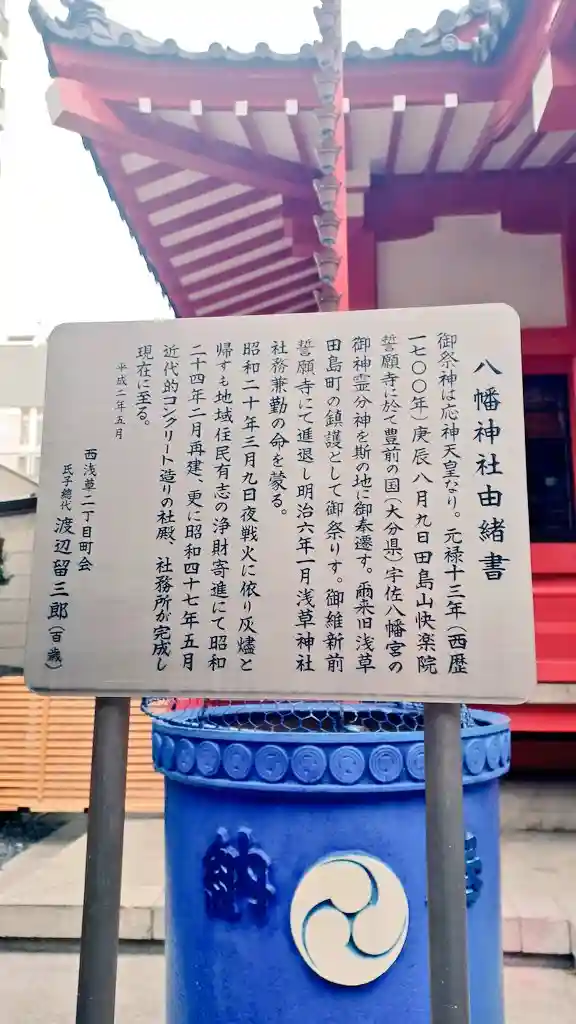 八幡神社由緒書
御祭神は応神天皇なり。元禄十三年(西歴
一七〇〇年)庚辰八月九日田島山快楽院
誓願寺に於て豊前の国(大分県)宇佐八幡宮の
御神霊分神を斯の地に御奉遷す。爾来旧浅草
田島町の鎮護として御祭りす。御維新前
誓願寺にて進退し明治六年一月浅草神社
社務兼勤の命を蒙る。
昭和二十年三月九日夜戦火に依り灰燼と
帰すも地域住民有志の浄財寄進にて昭和
二十四年二月再建、更に昭和四十七年五月
近代的コンクリート造りの社殿、社務所が完成し
現在に至る。
平成二年五月
西浅草二丁目町会
氏子總代 渡辺留三郎(百歳)
納